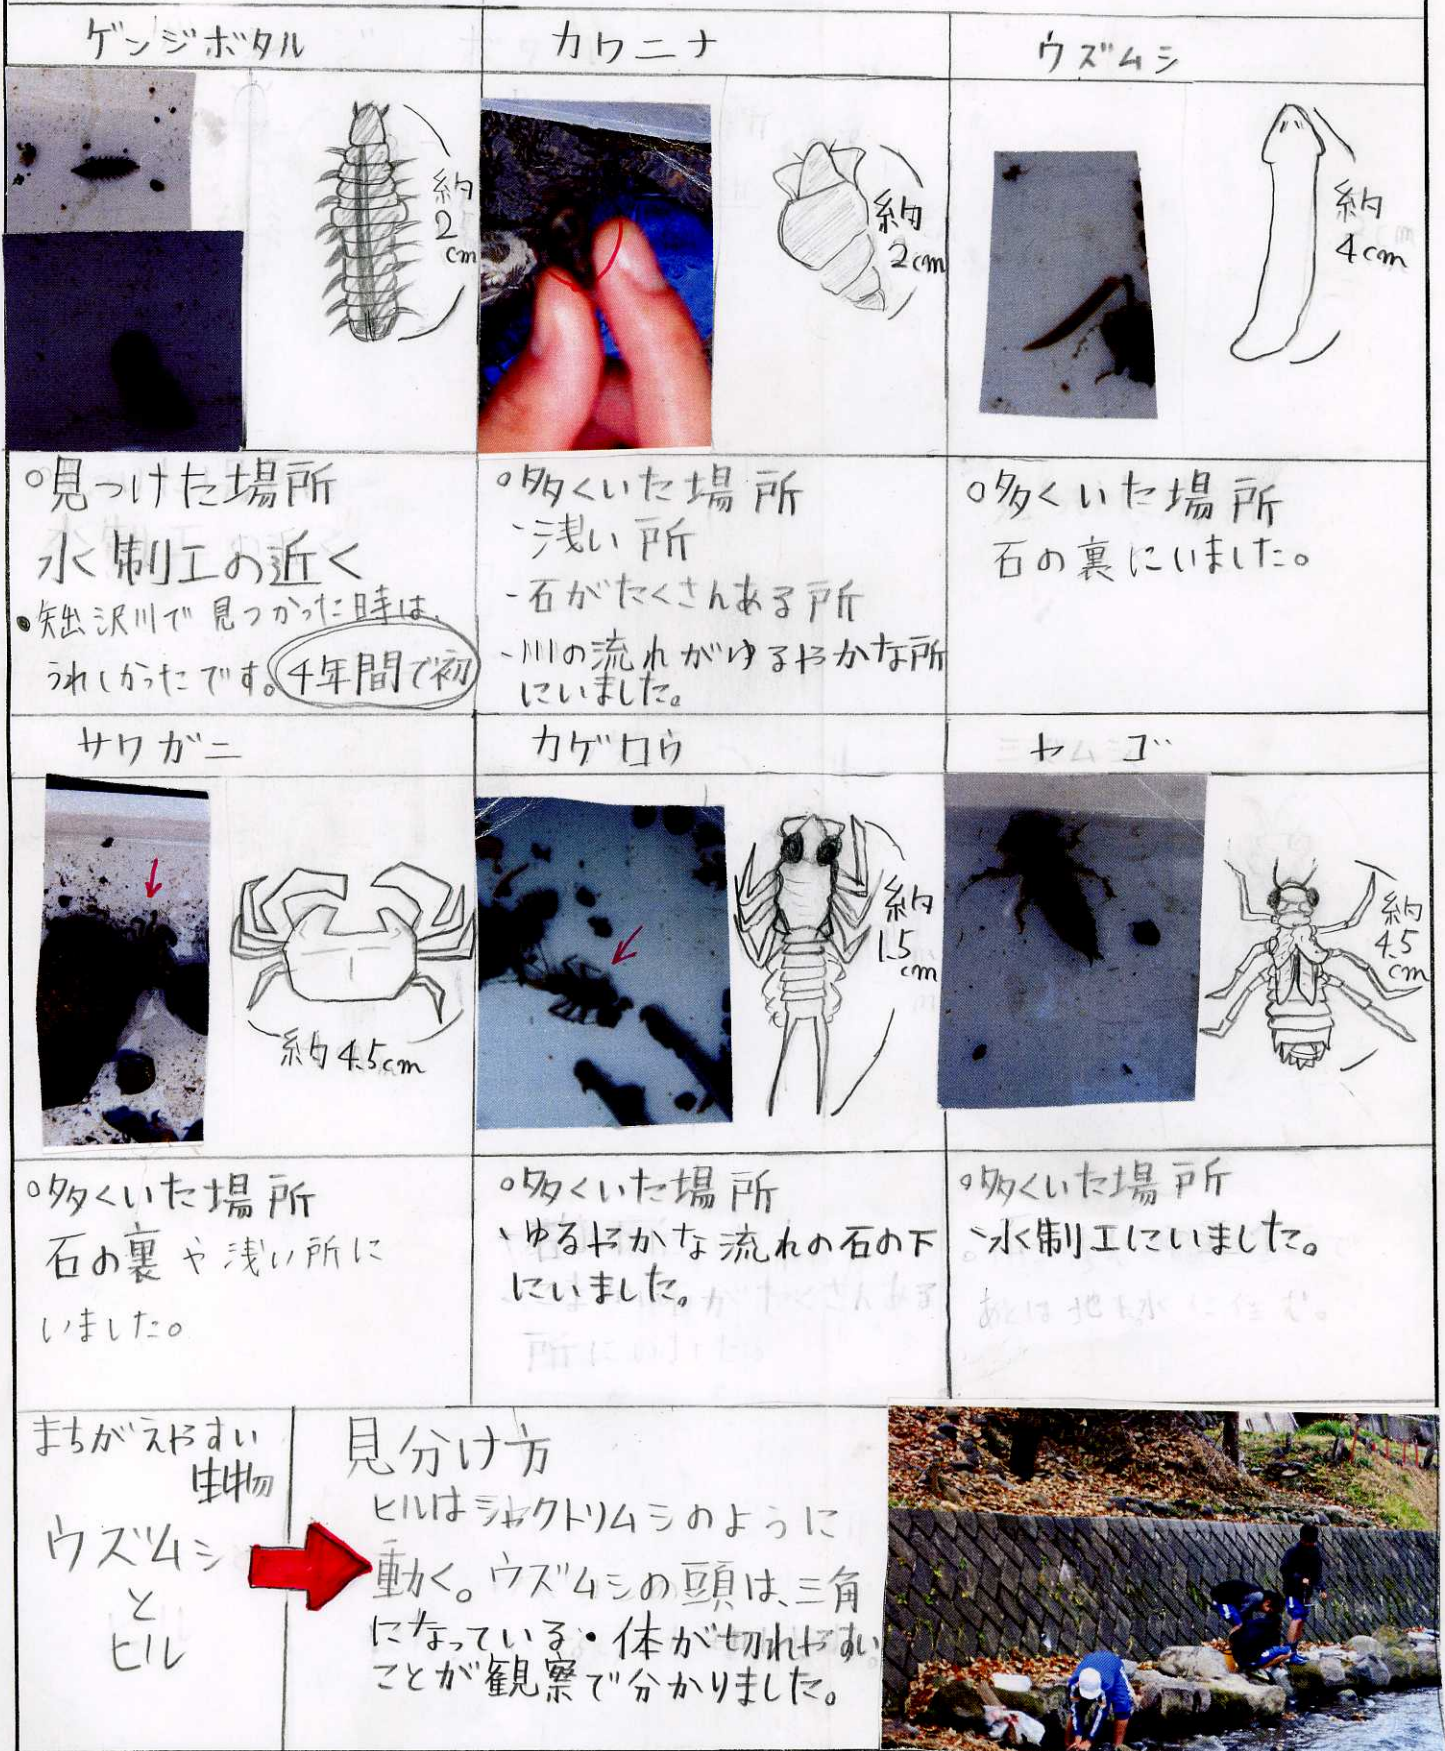 ゲンジボタル
カワニナ
ウズムシ
約
2
cm
約
2cm
約
4cm
○見つけた場所
水制工の近く
・矢出沢川で見つかった時は、
うれしかったです。4年間で初
○多くいた場所
-浅い所
-石がたくさんある所
-川の流れがゆるやかな所
にいました。
○多くいた場所
石の裏にいました。
サワガニ
カゲロウ
ヤゴ
約4.5cm
約
1.5
cm
約
4.5
cm
○多くいた場所
石の裏や浅い所に
いました。
○多くいた場所
、ゆるやかな流れの石の下
にいました。
○多くいた場所
、水制工にいました。
まちがえやすい
生物
ウズムシ
と
ヒル
見分け方
ヒルはシャクトリムシのように
動く。ウズムシの頭は、三角
になっている・体が切れやすい
ことが観察で分かりました。